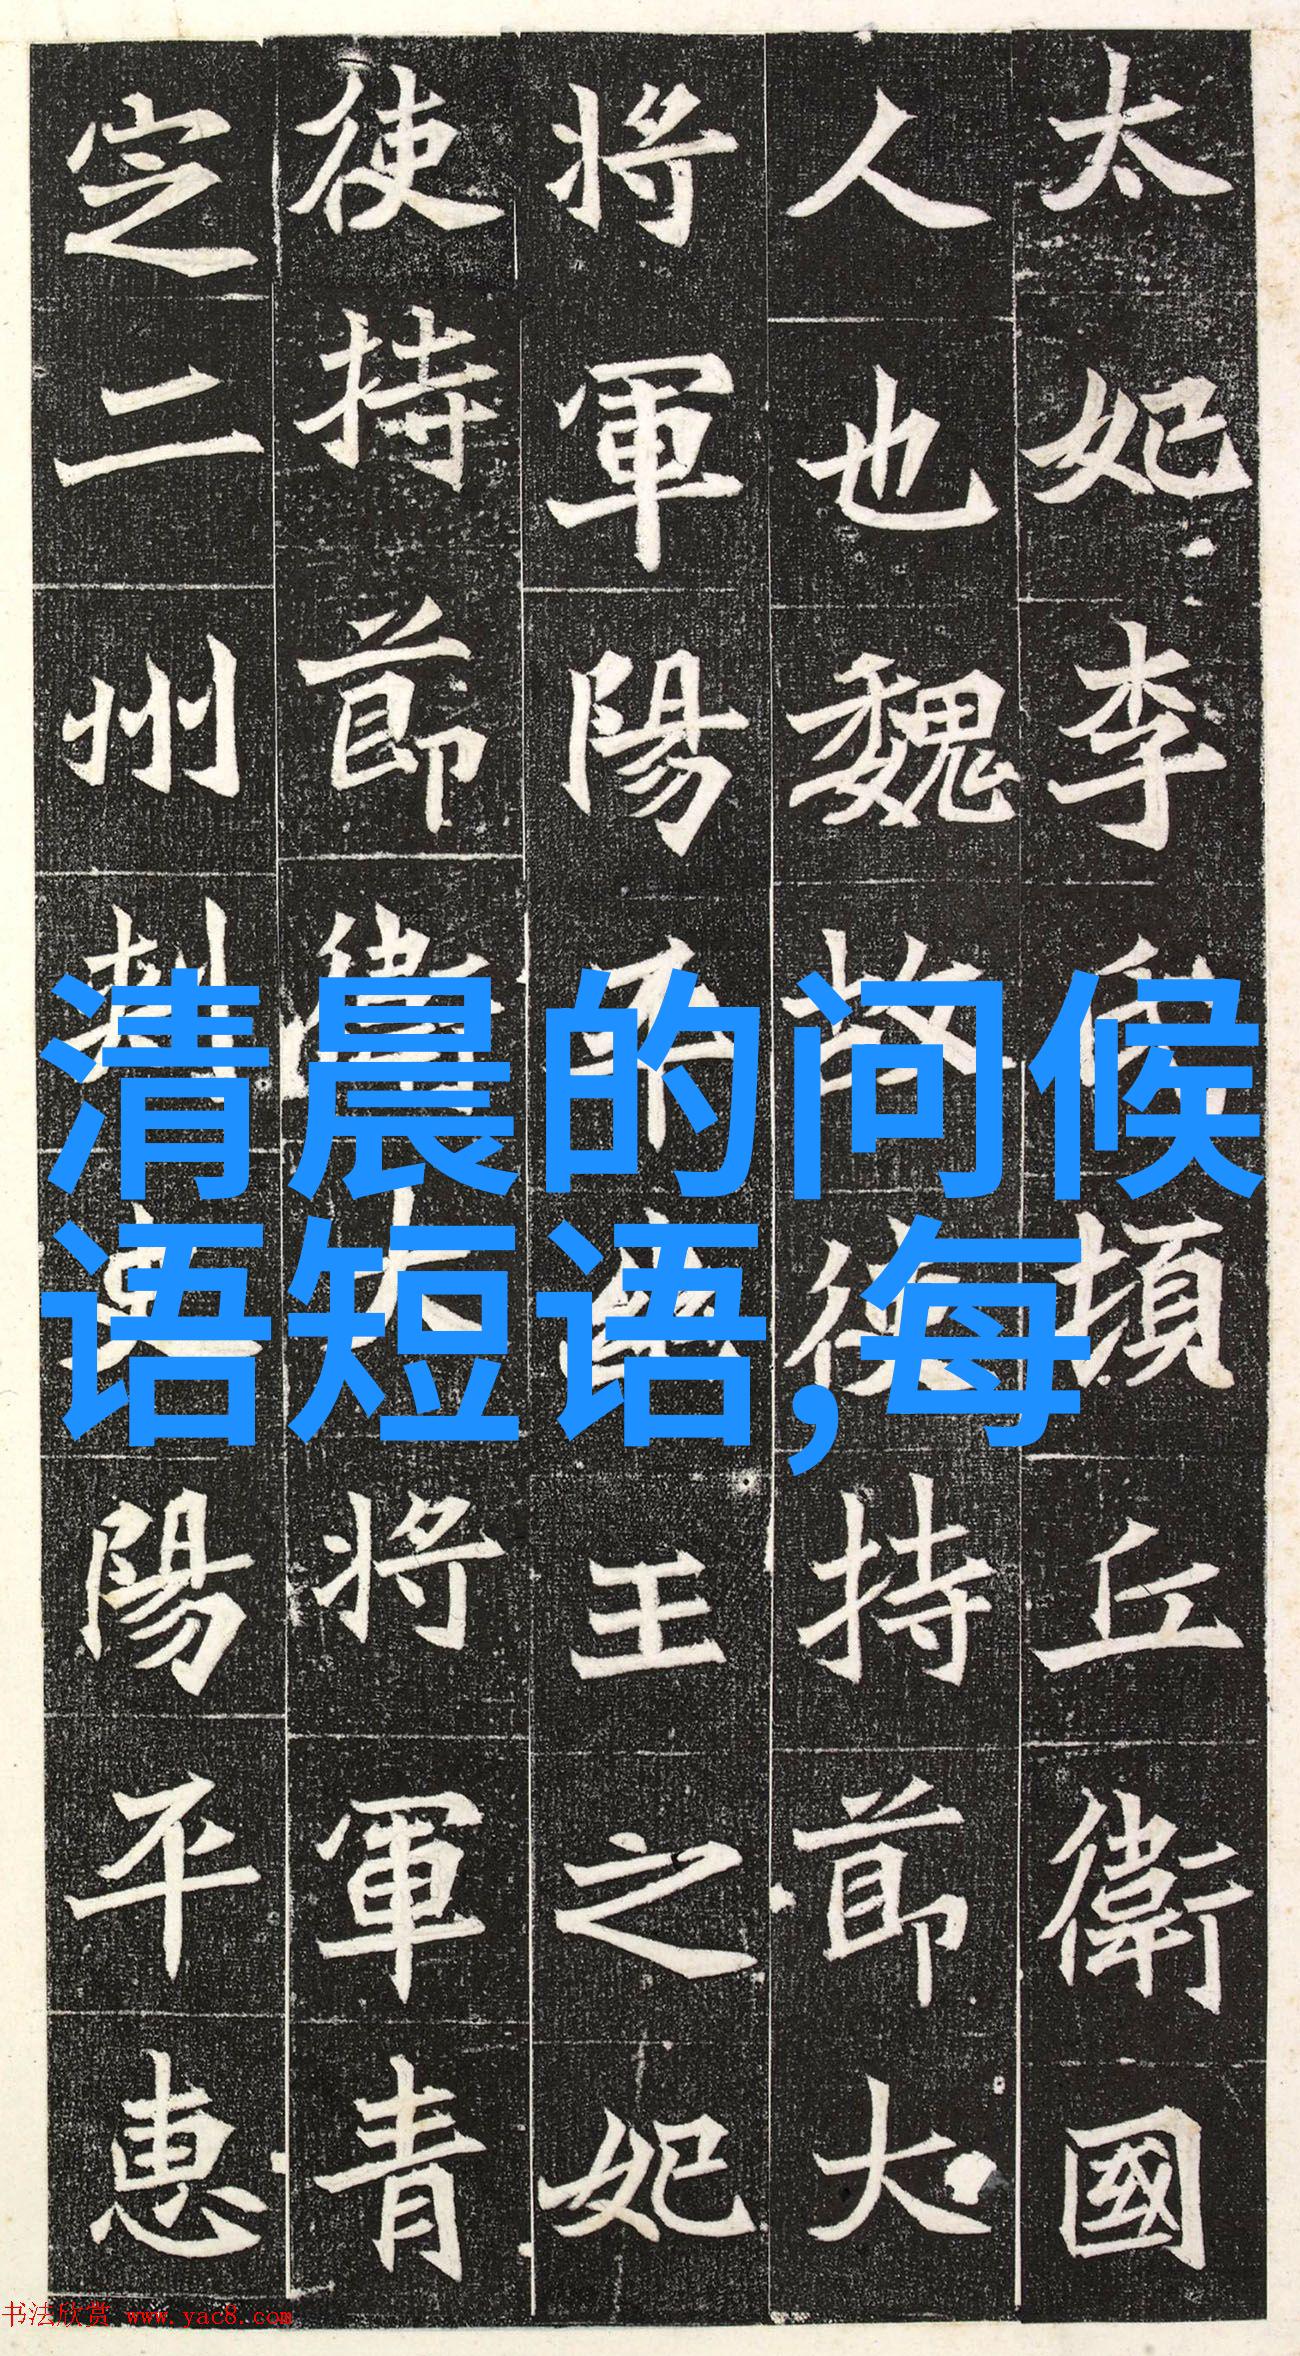 太妃李氏頓丘衛國
人也魏故使持節大
將軍陽平幽王之妃
使持節衛大將軍青
定二州刺史陽平惠
清晨的问候
语短语,每
书法欣赏 www.yac8.com